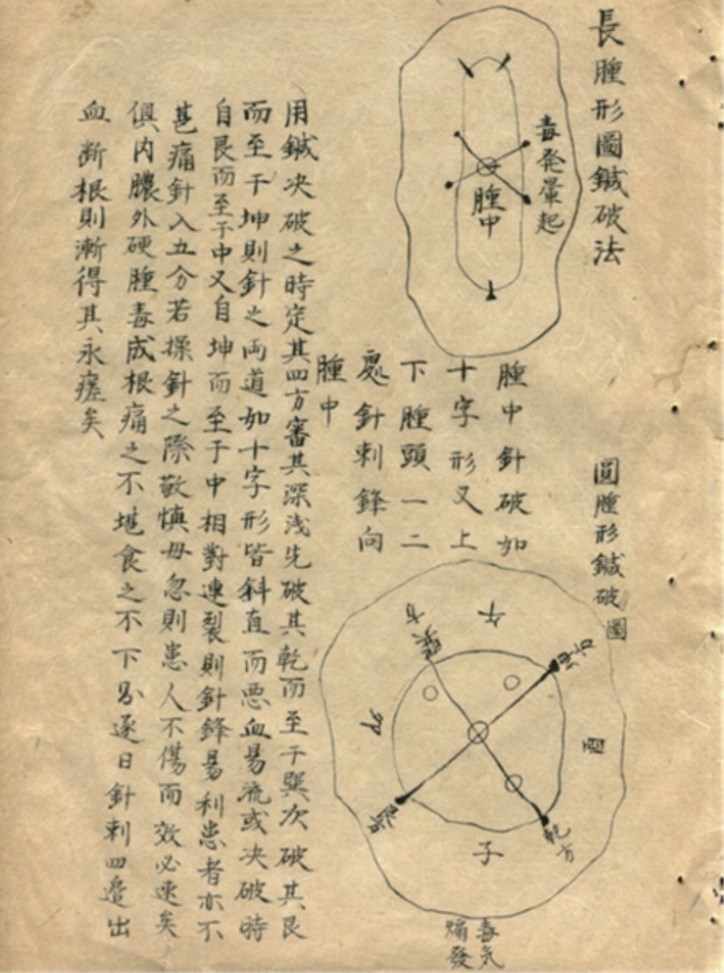 長腫形圖鍼破法
毒發暈起
腫中
腫中針破如
十字形又上
下腫頭一二
處針刺鋒向
腫中
圓腫形鍼破圖
午
巽方
坤方
卯
酉
艮方
乾方
子
毒気
熖發
用鍼决破之時定其四方審其深浅先破其乾而至于巽次破其艮
而至于坤則針之両道如十字形皆斜直而悪血易流或决破時
自艮而至于中又自坤而至于中相對連裂則針鋒易利患者亦不
甚痛針入五分若操針之際敬慎毋忽則患人不傷而效必速矣
俱内膿外硬腫毒成根痛之不堪食之不下另逐日針刺四邉出
血断根則漸得其永瘥矣